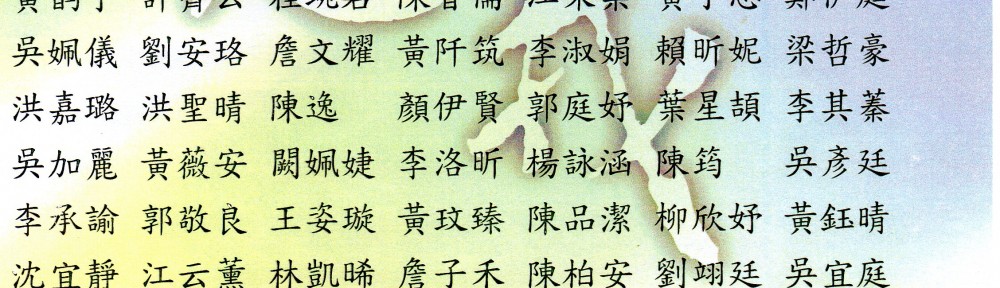 吳姵儀 劉安珞 詹文耀 黃阡筑 李淑娟 賴昕妮 梁哲豪
洪嘉璐 洪聖晴 陳逸 顏伊賢 郭庭妤 葉星頡 李其蓁
吳加麗 黃薇安 闕姵婕 李洛昕 楊詠涵 陳筠 吳彥廷
李承諭 郭敬良 王姿璇 黃玟臻 陳品潔 柳欣妤 黃鈺晴
沈宜靜 江云薰 林凱晞 詹子禾 陳柏安 劉翊廷 吳宜庭